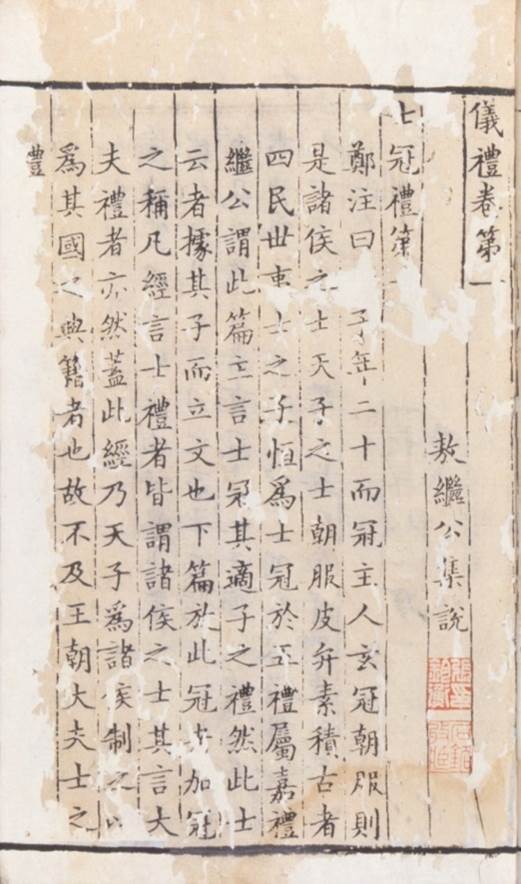 儀禮卷第一
敖繼公集說
士冠禮第
鄭注曰 子年二十而冠主人玄冠朝服則
是諸侯之士天子之士朝服皮弁素積古者
四民世事士之子恒爲士冠於五禮屬嘉禮
繼公謂此篇主言士冠其適子之禮然此士
云者據其子而立文也下篇放此冠者加冠
之稱凡經言士禮者皆謂諸侯之士其言大
夫禮者亦然蓋此經乃天子爲諸侯制之以
爲其國之典籍者也故不及王朝大夫士之
禮